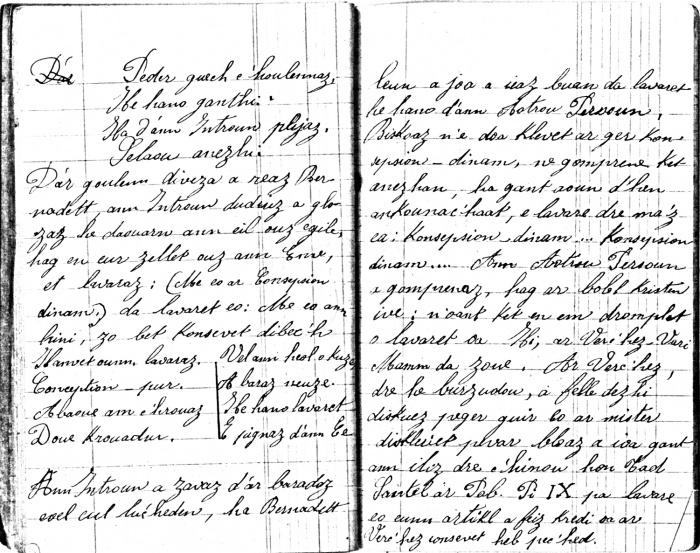 Peder guech e c'houlennaz,
He hano ganthi:
Ha d'ann Introun plijaz,
Selaou anezhi.
D'ar goulenn diveza a reaz Ber-
nadett, ann Introun dudiuz a glo-
zaz he daouarn ann eil ouz egile,
hag en eur zellet ouz ann Env,
et lavaraz: (Me eo ar Consepsion
dinam.) da lavaret eo: Me eo ann
hini, zo bet konsevet dibec'h
Hanvet ounn, lavaraz.
Conception-pur.
Abaoue am c'hrouaz
Doue Krouadur.
Vel ann heol o kuzet
A baraz neuze
He hano lavaret
E pignaz d'ann Ee
Ann Introun a zavaz d'ar baradoz
evel eul luc'heden, ha Bernadett
leun a joa a ieaz buan da lavaret
he hano d'ann Aotrou Person.
Biskoaz n'e doa klevet ar ger kon-
sepsion-dinam, ne gomprene ket
anezhan, ha gant aoun d'hen
ankounac'haat, e lavare dre ma'z
ea: Konsepsion-dinam... Konsepsion
dinam.... Ann Aotrou Person
e gomprenaz, hag ar bobl kristen
ive: n'oant ket en em dromplet
o lavaret oa Hi, ar Verc'hez-Vari
Mamm da Zoue. Ar Verc'hez,
dre he burzudou, a felle dezhi
diskuez peger guir eo ar mister
diskleriet pevar bloaz a ioa gant
ann iliz dre c'hinou hon Tad
Santel ar Pab. Pi IX pa lavare
eo eunn artikl a feiz kredi oa ar
Verc'hez consevet heb pec'hed.